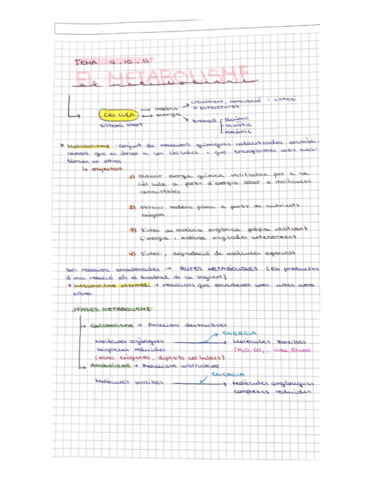 TEMA 9, 10, 11
EL METABOLISME
el metabolisme
creixement, renovació i síntesi
d'estructures
CÈL·LULA
matèria
energia
sistema obert
treball
Químic
osmòtic
mecànic
* Metabolisme: conjunt de reaccions químiques catalitzades enzimàti-
cament que es donen a les cèl·lules i que transformen unes subs-
tàncies en altres
↳ objectius
1) Obtenir energia química utilitzable per a la
cèl·lula a partir d'energia solar o molècules
combustibles
2) Obtenir matèria prima a partir de nutrients
exògens
3) Síntesi de matèria orgànica pròpia utilitzant
l'energia i matèria originades anteriorment
4) Síntesi, degradació de molècules especials
Són reaccions encadenades → RUTES METABÒLIQUES (els productes
d'una reacció són el substrat de la següent)
* Metabolisme intermedi → reaccions que encadenen unes rutes amb
altres
FASES METABOLISME:
Catabolisme → Reaccions destructives
ENERGIA
Molècules orgàniques → Molècules senzilles
complexes reduïdes (H2O, CO2,
(molec exògenes, dipòsits cel·lulars)
Anabolisme → Reaccions constructives
ENERGIA
Molècules senzilles → Molècules orgàniques
complexes reduïdes